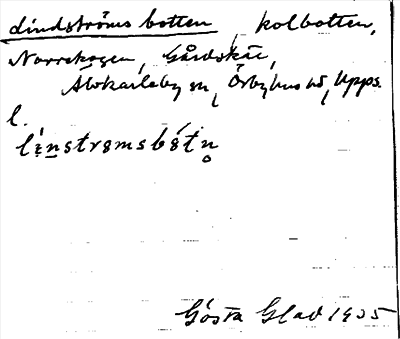 Lindströms botten, kolbotten,
Norrskogen, Gårdskär,
Älvkarleby sn, Örbyhus hd, Upps.
l.
línstrɷmsbótn̥
Gösta Glad 1935